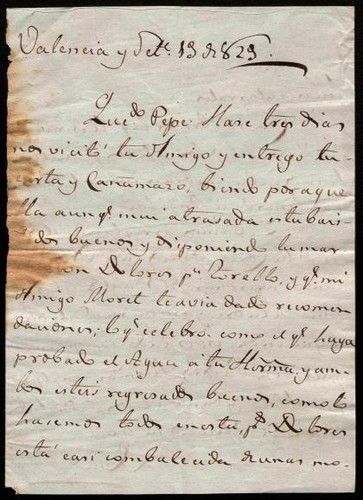 Valencia y Sete. 19 de 829.
Quedo. Pepe: Hase tres dias
nos visitó tu Amigo y entrego tu
carta y Cañamazo, biendo por aque
lla aunqe. mui atrasada estabais
dos buenos y disponiendo tomar
Dolores pa. Torello, y qe. mi
Amigo Moret te avia dado recomen
daciones; lo qe. celebro. como el qe. haya
probado el Agua á tu Herma. y am
bos esteis regresados buenos, como lo
hasemos todos en esta, ps. Dolores
está casi combalecida de unas mo-